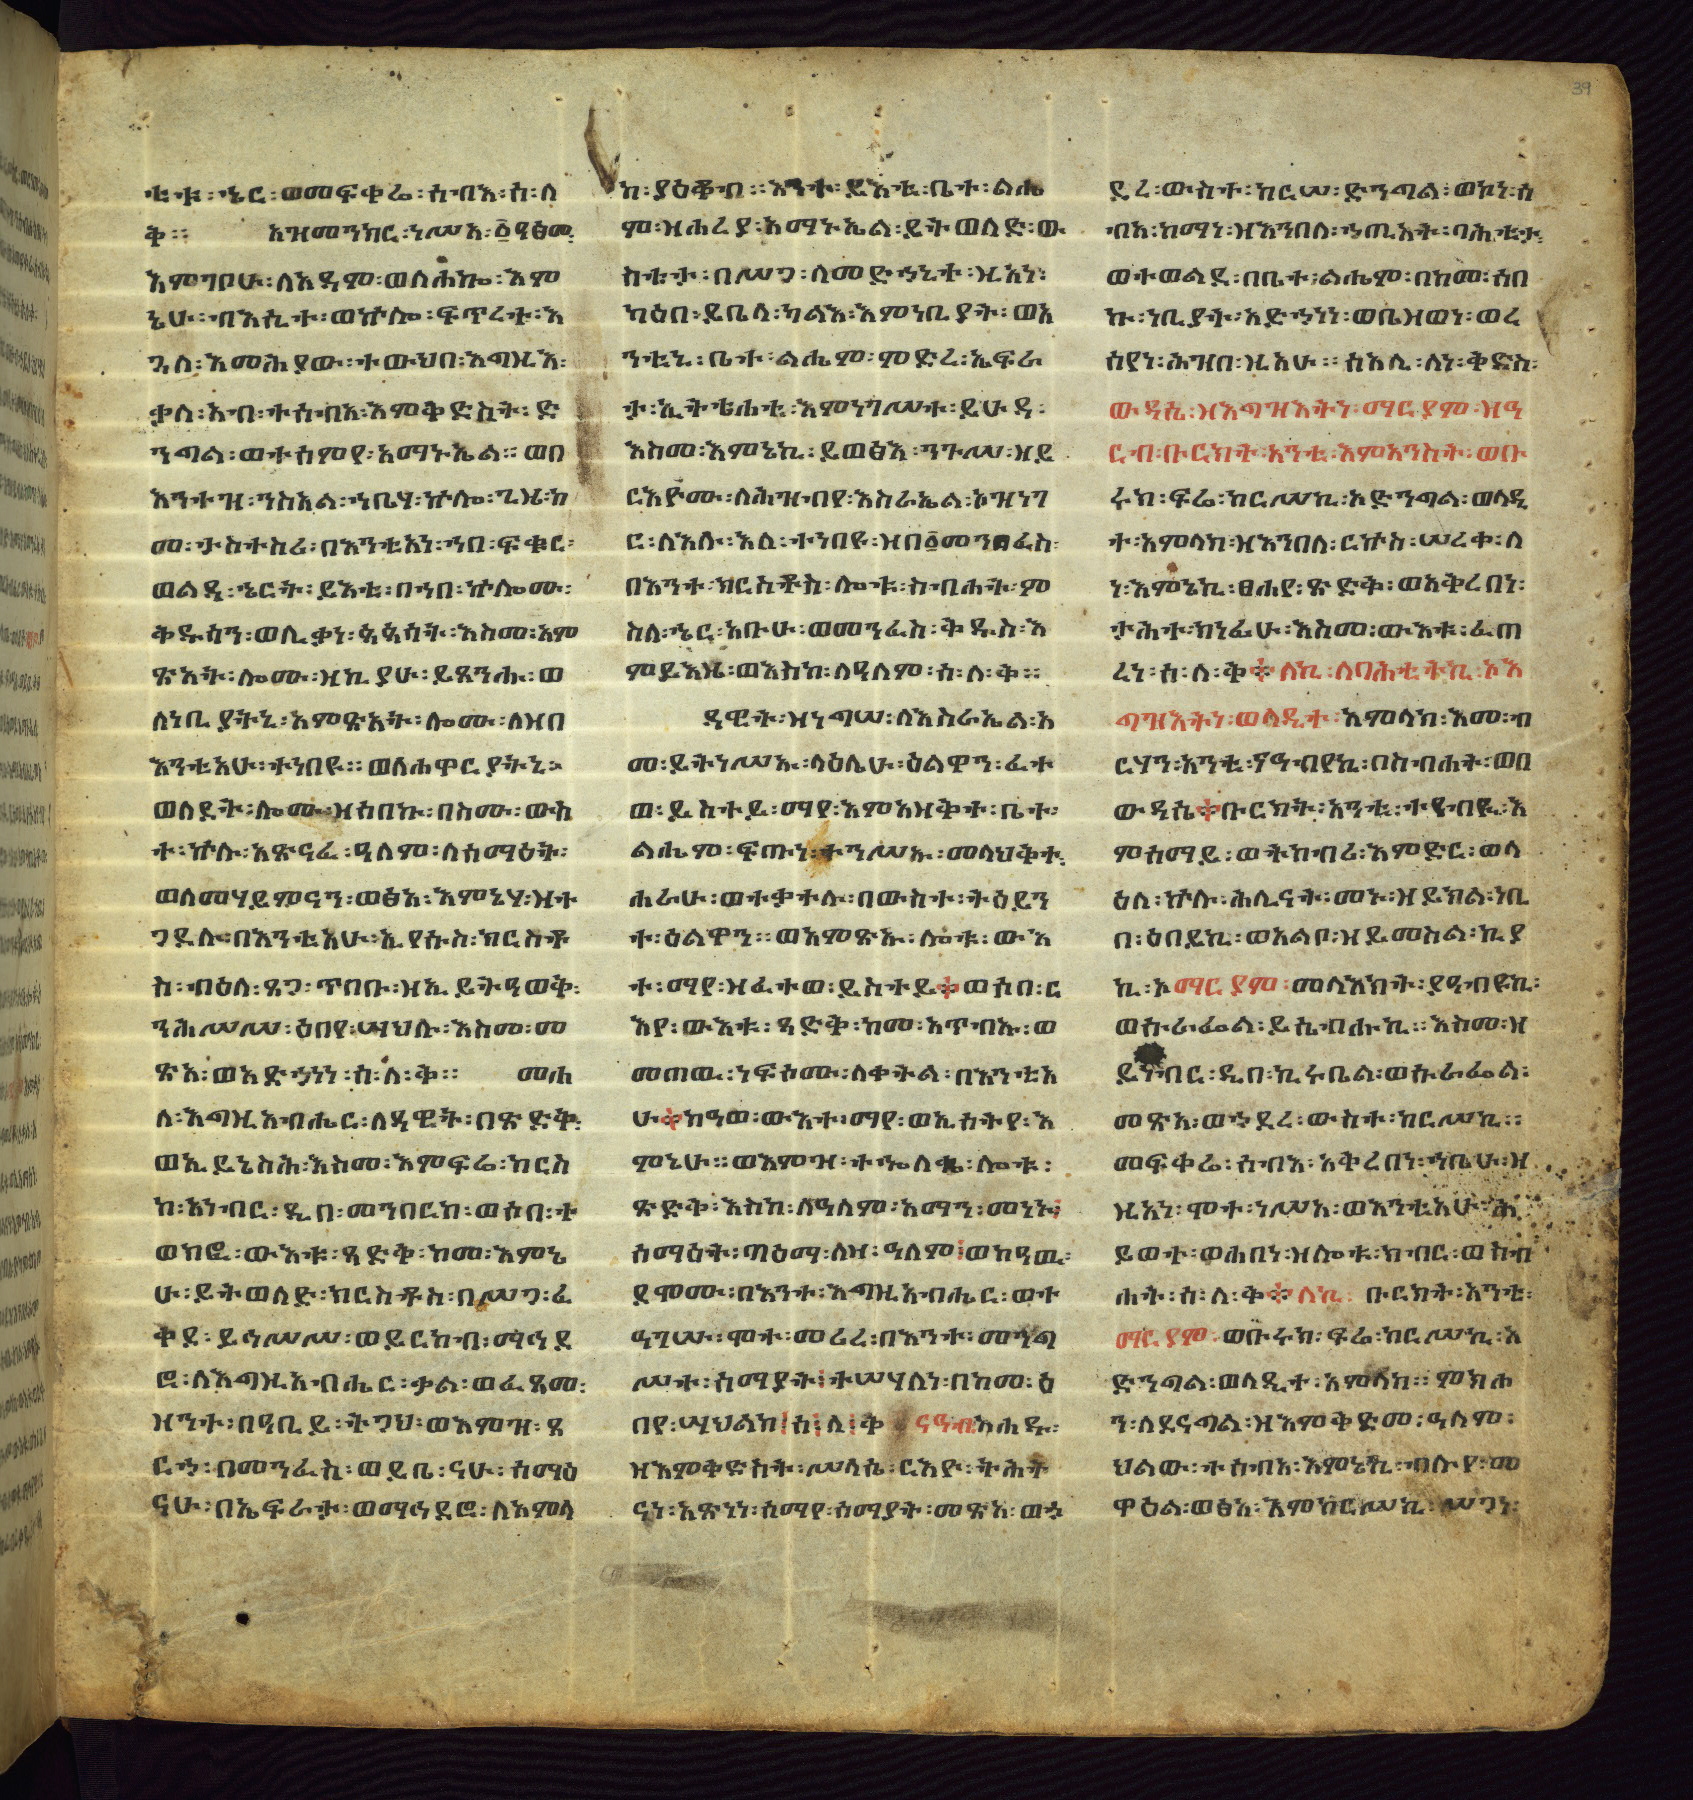 ቲቱ፡ ኄር፡ ወመፍቀሬ፡ ሰብእ፡ ስ፡ ለ
ቅ።
እምገቦሁ፡ ለአዳም፡ ወለሐከ፡ እም
ኔሁ፡ ብእሲተ፡ ወኵሎ፡ ፍጥረተ፡ እ
ጓለ፡ እመሕያው፡ ተውህበ፡ እግዚእ፡
ቃለ፡ አብ፡ ተሰብአ፡ እምቅድስት፡ ድ
ንግል፡ ወተሰምየ፡ አማኑኤል። ወበ
እንተዝ፡ ንስአል፡ ኀቤሃ፡ ኵሎ፡ ጊዜ፡ ከ
መ፡ ታስተስሪ፡ በእንቲአነ፡ ኀበ፡ ፍቁር፡
ወልዳ፡ ኄርት፡ ይእቲ፡ በኀበ፡ ኵሎሙ፡
ቅዱሳን፡ ወሊቃነ፡ ጳጳሳት፡ እስመ፡ አም
ጽአት፡ ሎሙ፡ ዘኪያሁ፡ ይጸንሑ፡ ወ
ለነቢያትኒ፡ አምጽአት፡ ሎሙ፡ ለዘበ
እንቲአሁ፡ ተነበዩ። ወለሐዋርያትኒ፡
ወለደት፡ ሎሙ፡ ዘሰበኩ፡ በስሙ፡ ውስ
ተ፡ ኵሉ፡ አጽናፈ፡ ዓለም፡ ለሰማዕት፡
ወለመሃይምናን፡ ወፅአ፡ እምኔሃ፡ ዘተ
ጋደሉ፡ በእንቲአሁ፡ ኢየሱስ፡ ክርስቶ
ስ፡ ብዕለ፡ ጸጋ፡ ጥበቡ፡ ዘኢይትዓወቅ፡
ንሕሠሥ፡ ዕበየ፡ ሣህሉ፡ እስመ፡ መ
ጽአ፡ ወአድኀነነ፡ ስ፡ ለ፡ ቅ። መሐ
ለ፡ እግዚአብሔር፡ ለዳዊት፡ በጽድቅ፡
ወኢይኔስሕ፡ እስመ፡ እምፍሬ፡ ከርሥ
ከ፡ አነብር፡ ዲበ፡ መንበርከ፡ ወሶበ፡ ተ
ወክፎ፡ ውእቱ፡ ጻድቅ፡ ከመ፡ እምኔ
ሁ፡ ይትወለድ፡ ክርስቶስ፡ በሥጋ፡ ፈ
ቀደ፡ ይኅሥሥ፡ ወይርከብ፡ ማኅደ
ሮ፡ ለእግዚአብሔር፡ ቃል፡ ወፈጸመ፡
ዘንተ፡ በዓቢይ፡ ትጋህ፡ ወእምዝ፡ ጸ
ርኀ፡ በመንፈስ፡ ወይቤ፡ ናሁ፡ ሰማዕ
ናሁ፡ በኤፍራታ፡ ወማኅደሮ፡ ለአምላ
ከ፡ ያዕቆብ። እንተ፡ ይእቲ፡ ቤተ፡ ልሔ
ም፡ ዘሐረያ፡ አማኑኤል፡ ይትወለድ፡ ው
ስቴታ፡ በሥጋ፡ ለመድኀኒተ፡ ዚአነ፡
ካዕበ፡ ይቤላ፡ ካልእ፡ እምነቢያት፡ ወአ
ንቲኒ፡ ቤተ፡ ልሔም፡ ምድረ፡ ኤፍራ
ታ፡ ኢትቴሐቲ፡ እምነገሥተ፡ ይሁዳ፡
እስመ፡ እምኔኪ፡ ይወፅእ፡ ንጉሥ፡ ዘይ
ርእዮሙ፡ ለሕዝብየ፡ እስራኤል፡ ኦዝነገ
ር፡ ለእሉ፡ እለ፡ ተነበዩ፡ ዘበ፩መንፈስ፡
በእንተ፡ ክርስቶስ፡ ሎቱ፡ ስብሐት፡ ም
ስለ፡ ኄር፡ አቡሁ፡ ወመንፈስ፡ ቅዱስ፡ እ
ምይእዜ፡ ወእስከ፡ ለዓለም፡ ስ፡ ለ፡ ቅ።
ዳዊት፡ ዘነግሠ፡ ለእስራኤል፡ አ
መ፡ ይትነሥኡ፡ ላዕሌሁ፡ ዕልዋን፡ ፈተ
ወ፡ ይስተይ፡ ማየ፡ እምአዘቅተ፡ ቤተ፡
ልሔም፡ ፍጡነ፡ ተንሥኡ፡ መላህቅተ፡
ሐራሁ፡ ወተቃተሉ፡ በውስተ፡ ትዕይን
ተ፡ ዕልዋን። ወአምጽኡ፡ ሎቱ፡ ውእ
ተ፡ ማየ፡ ዘፈተወ፡ ይስተይ፡ ወሶበ፡ ር
እየ፡ ውእቱ፡ ጻድቅ፡ ከመ፡ አጥብኡ፡ ወ
መጠዉ፡ ነፍሶሙ፡ ለቀትል፡ በእንቲአ
ሁ፡ ከዓወ፡ ውእተ፡ ማየ፡ ወኢሰትየ፡ እ
ምኔሁ። ወእምዝ፡ ተኆለቈ፡ ሎቱ፡
ጽድቅ፡ እስከ፡ ለዓለም፡ አማን፡ መነኑ፡
ሰማዕት፡ ጣዕማ፡ ለዛ፡ ዓለም፡ ወከዓዉ፡
ደሞሙ፡ በእንተ፡ እግዚአብሔር፡ ወተ
ዓገሡ፡ ሞተ፡ መሪረ፡ በእንተ፡ መንግ
ሥተ፡ ሰማያት፡ ተሣሃለነ፡ በከመ፡ ዕ
በየ፡ ሣህልከ፡ ስ፡ ለ፡ ቅ ናዓብ አሐዱ፡
ዘእምቅድስት፡ ሥላሴ፡ ርእዮ፡ ትሕት
ናነ፡ አጽነነ፡ ሰማየ፡ ሰማያት፡ መጽአ፡ ወኃ
ደረ፡ ውስተ፡ ከርሠ፡ ድንግል፡ ወኮነ፡ ሰ
ብአ፡ ከማነ፡ ዘእንበለ፡ ኀጢአት፡ ባሕቲታ፡
ወተወልደ፡ በቤተ፡ ልሔም፡ በከመ፡ ሰበ
ኩ፡ ነቢያት፡ አድኀነነ፡ ወቤዘወነ፡ ወረ
ሰየነ፡ ሕዝበ፡ ዚአሁ። ሰአሊ፡ ለነ፡ ቅድስ፡
ውዳሴ፡ ዘእግዝእትነ፡ ማርያም፡ ዘዓ
ርብ፡ ቡርክት፡ አንቲ፡ እምአንስት፡ ወቡ
ሩክ፡ ፍሬ፡ ከርሥኪ፡ አድንግል፡ ወላዲ
ተ፡ አምላክ፡ ዘእንበለ፡ ርኵስ፡ ሠረቀ፡ ለ
ነ፡ እምኔኪ፡ ፀሐየ፡ ጽድቅ፡ ወአቅረበነ፡
ታሕተ፡ ክነፊሁ፡ እስመ፡ ውእቱ፡ ፈጠ
ረነ፡ ስ፡ ለ፡ ቅ ለኪ፡ ለባሕቲትኪ፡ ኦእ
ግዝእትነ፡ ወላዲተ፡ አምላክ፡ እመ፡ ብ
ርሃን፡ አንቲ፡ ናዓብየኪ፡ በስብሐት፡ ወበ
ውዳሴ ቡርክት፡ አንቲ፡ ተዓብዪ፡ እ
ምሰማይ፡ ወትከብሪ፡ እምድር፡ ወላ
ዕለ፡ ኵሉ፡ ሕሊናት፡ መኑ፡ ዘይክል፡ ነቢ
በ፡ ዕበይኪ፡ ወአልቦ፡ ዘይመስል፡ ኪያ
ኪ፡ ኦማርያም፡ መላእክት፡ ያዓብዩኪ፡
ወሱራፌል፡ ይሴብሑኪ። እስመ፡ ዘ
ይነብር፡ ዲበ፡ ኪሩቤል፡ ወሱራፌል፡
መጽአ፡ ወኀደረ፡ ውስተ፡ ከርሥኪ።
መፍቀሬ፡ ሰብእ፡ አቅረበነ፡ ኀቤሁ፡ ዘ
ዚአነ፡ ሞተ፡ ነሥአ፡ ወእንቲአሁ፡ ሕ
ይወተ፡ ወሐበነ፡ ዘሎቱ፡ ክብር፡ ወስብ
ሐት፡ ስ፡ ለ፡ ቅ ለኪ፡ ቡርክት፡ አንቲ፡
ማርያም፡ ወቡሩክ፡ ፍሬ፡ ከርሥኪ፡ አ
ድንግል፡ ወላዲተ፡ አምላክ። ምክሐ
ን፡ ለደናግል፡ ዘእምቅድመ፡ ዓለም፡
ህልው፡ ተሰብአ፡ እምኔኪ፡ ብሉየ፡ መ
ዋዕል፡ ወፅአ፡ እምከርሥኪ፡ ሥጋነ፡